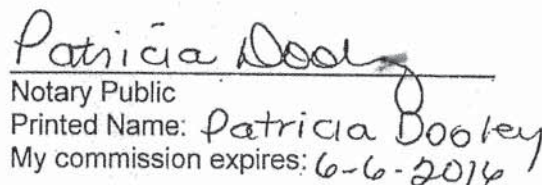 Patricia Dooley
Notary Public
Printed Name: Patricia Dooley
My commission expires: 6-6-2016